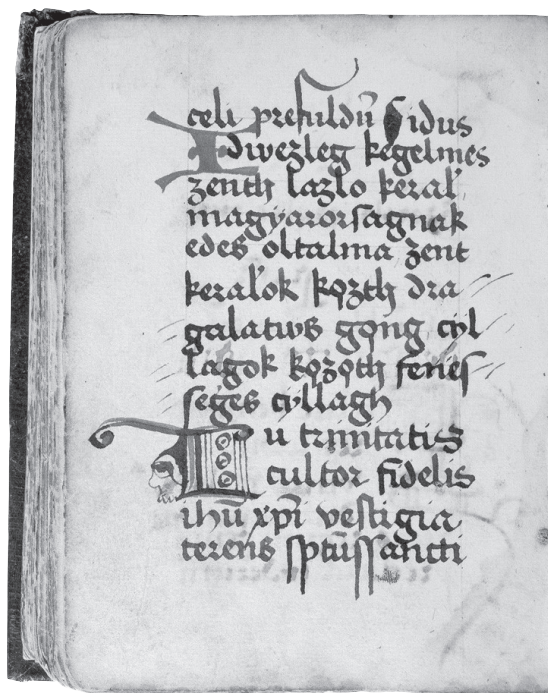 celi prefuldū Sidus
Idwezleg kegelmes
zenth lazlo keraľ
magyarorsagnak
edes oltalma zent
keraľok kǫzth dra
galatws gǫng cyl
lagok kǫzǫth fenes
seges cyllagh
Tu trinitatis
cultor fidelis
ihū xp̄i vestigia
terens sptūs sancti